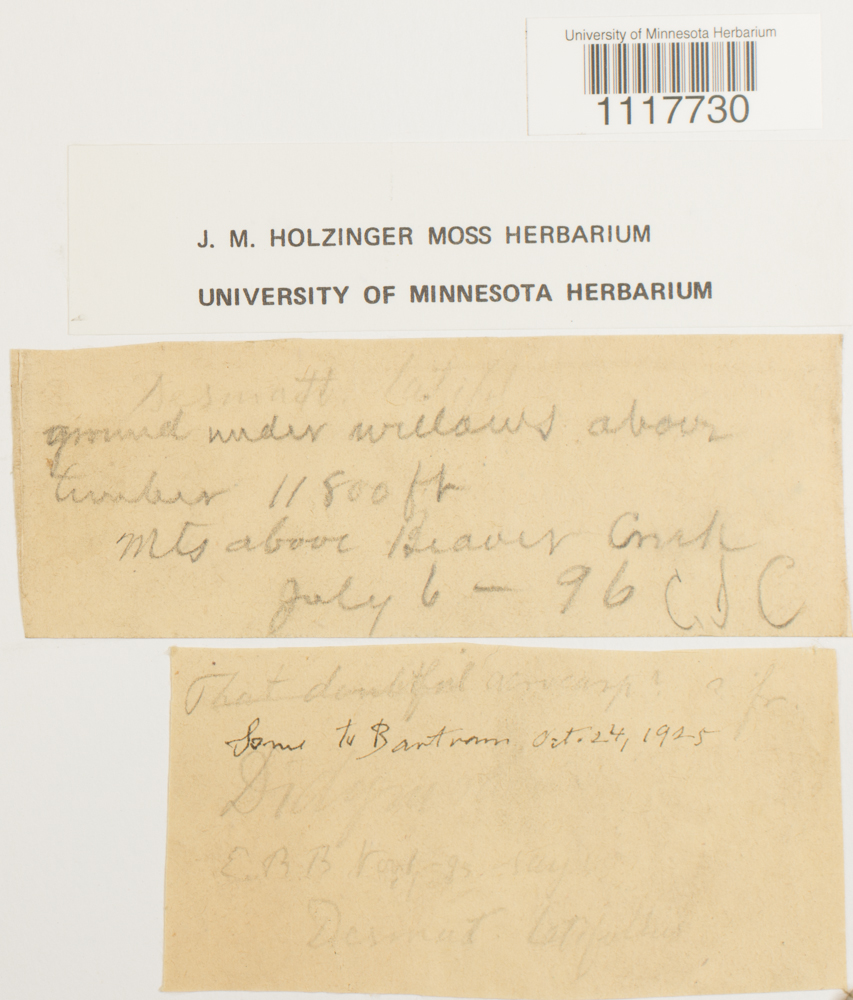 University of Minnesota Herbarium
1117730
J. M. HOLZINGER MOSS HERBARIUM
UNIVERSITY OF MINNESOTA HERBARIUM
Desmatt. Latif
ground under willows above
timber 11800 ft
Mts above Beaver Creek
July 6 - 96 C. J C
That doubtful acrocarp
Some to Bartram Oct. 24, 1925
Didym
E. B. B
Desmat. latifolius